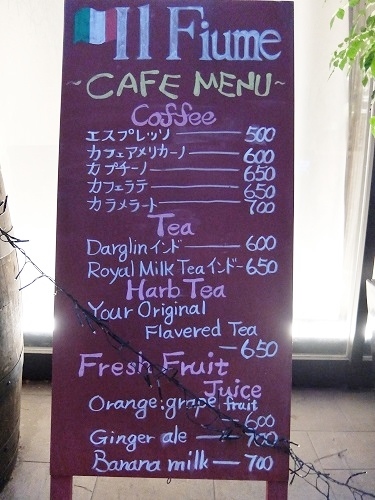 Il Fiume
~CAFE MENU~
Coffee
エスプレッソ — 500
カフェアメリカーノ — 600
カプチーノ — 650
カフェラテ — 650
カラメラート — 700
Tea
Darglin インド — 600
Royal Milk Tea インド - 650
Harb Tea
Your Original
Flavered Tea
— 650
Fresh Fruit
Juice
Orange.grape fruit
600
Ginger ale — 700
Banana milk — 700